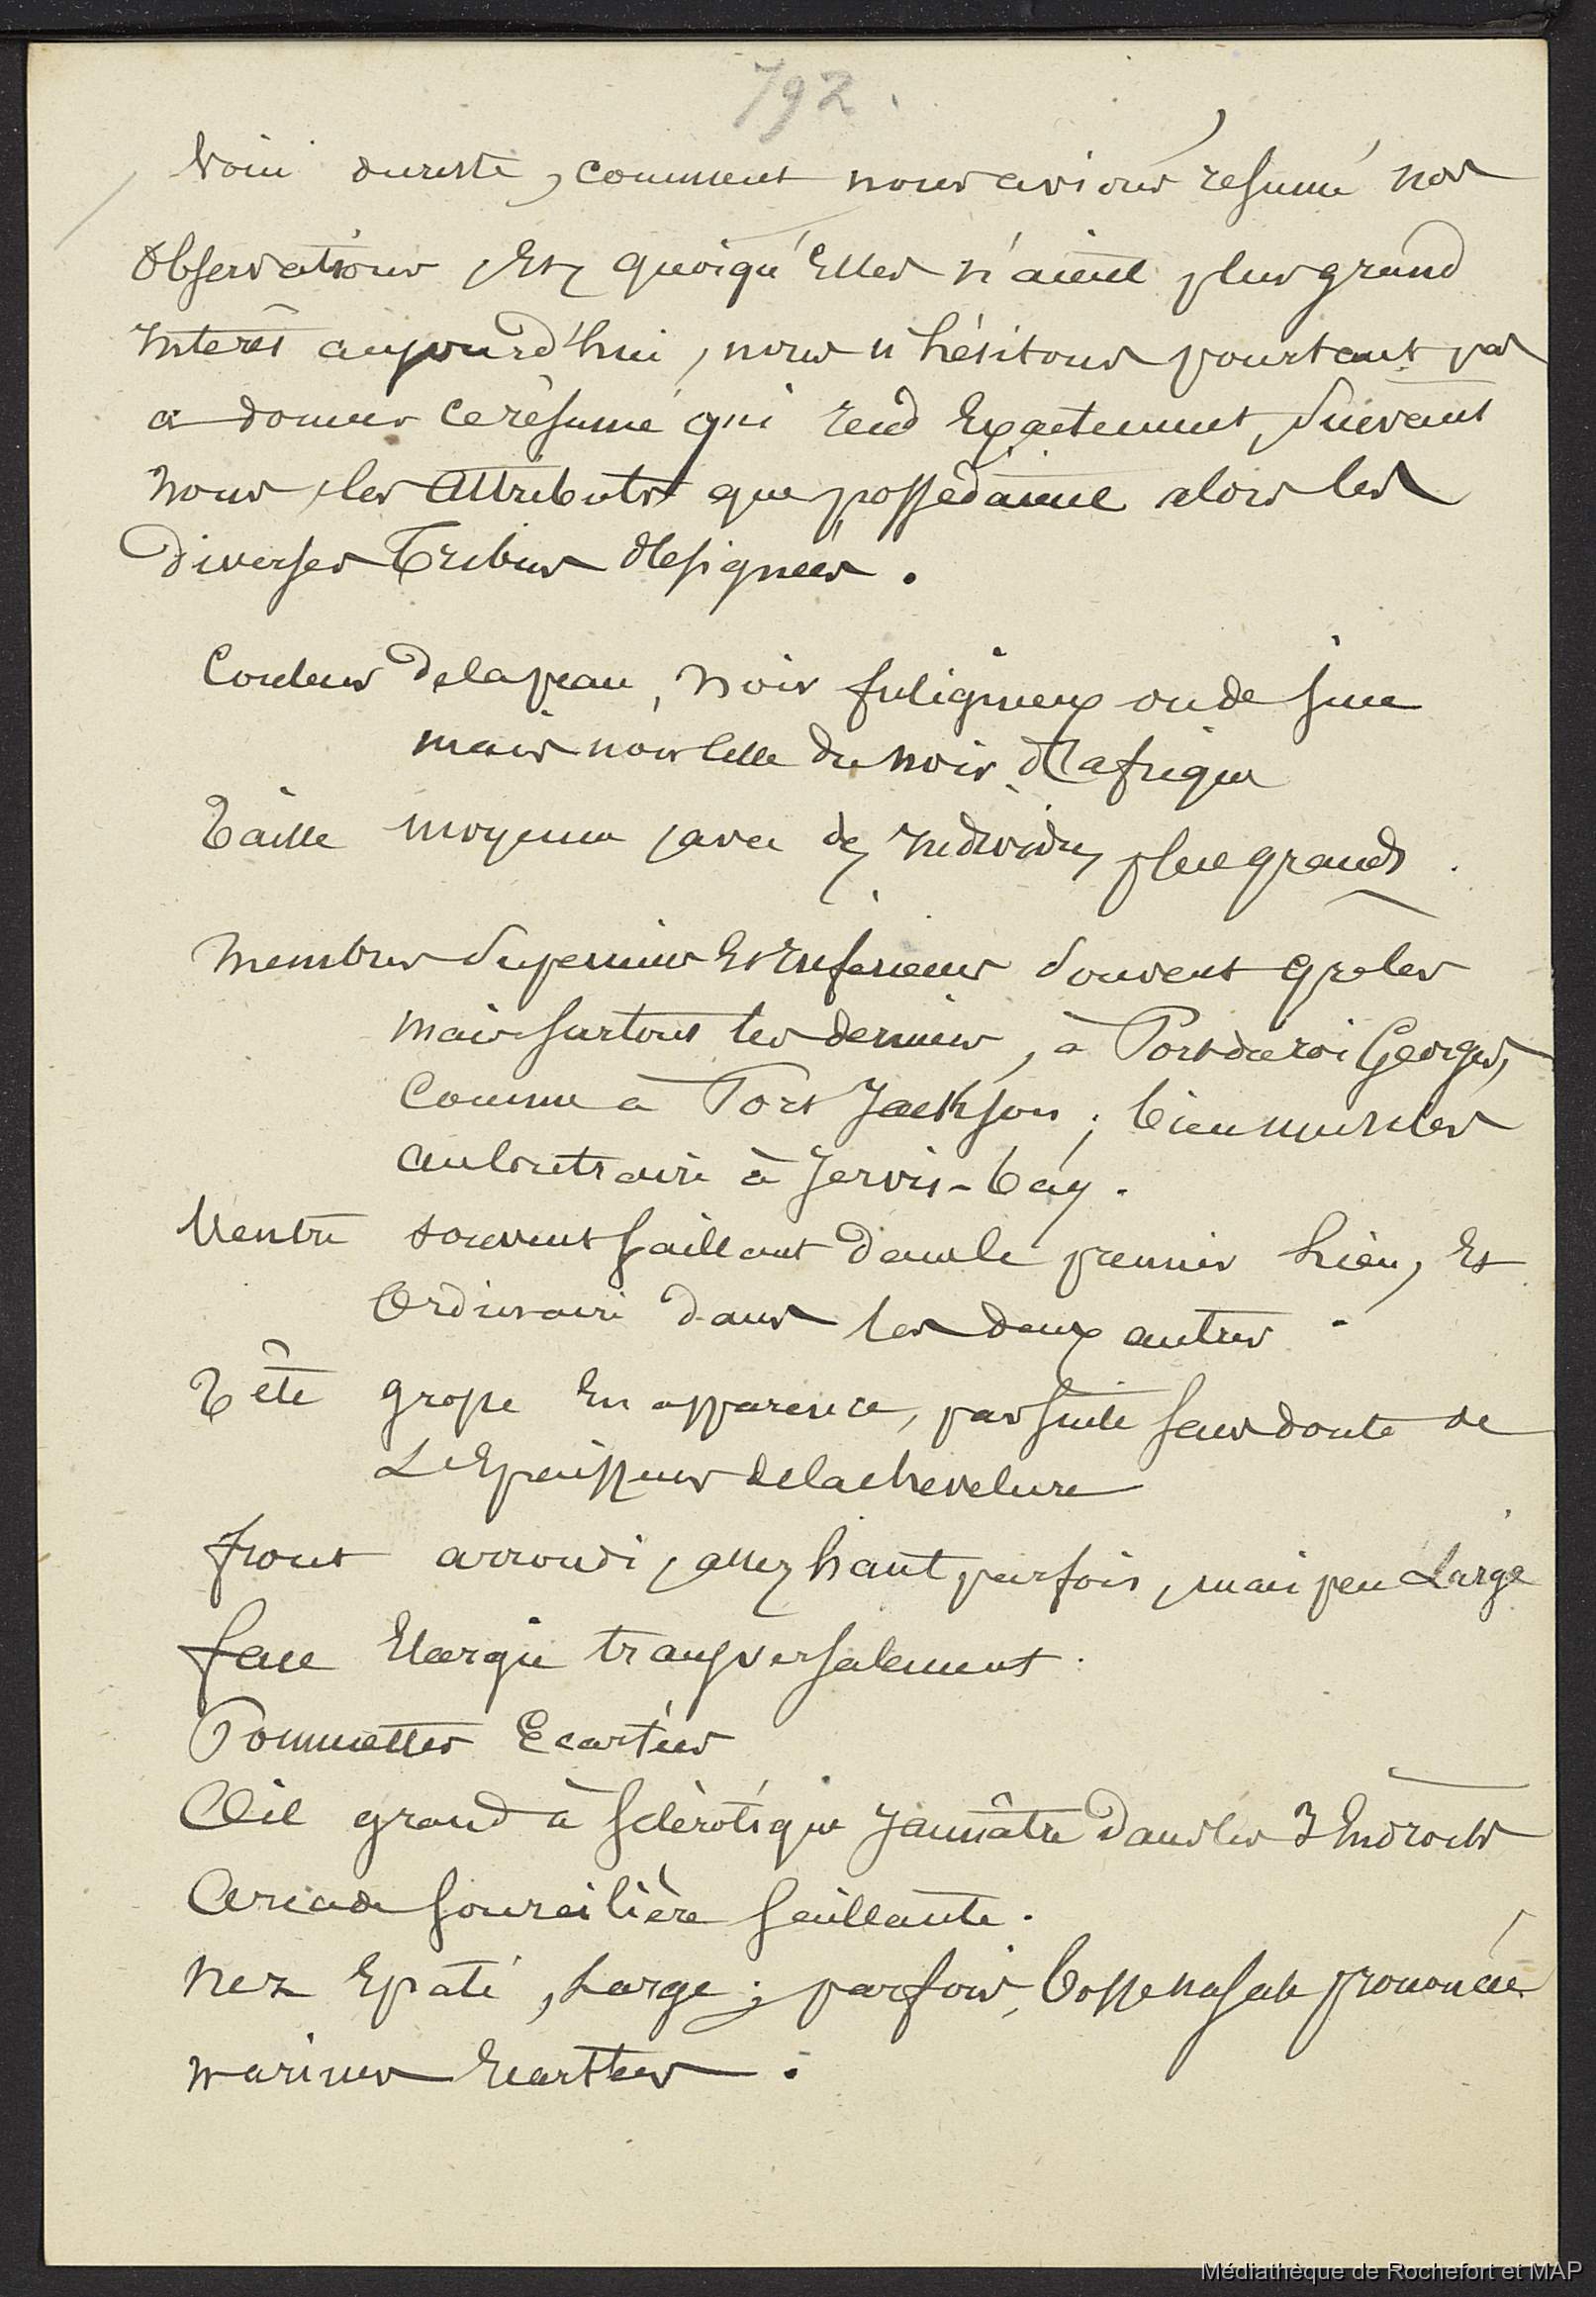 792.
Voici du reste, comment nous avions résumé nos
Observations, Et, quoiqu'Elles n'aient plus grand
Intérêt aujourd'hui, nous n'hésitons pourtant pas
a donner ce résumé qui rend Exactement, suivant
nous, les Attributs que possédaient alors les
diverses Tribus désignées.
Couleur de la peau, noir fuligineux ou de suie
mais non celle du noir d'afrique
Taille moyenne, avec des Individus plus grands.
Membres supérieurs Et Inférieurs souvent grêles
mais surtout les derniers, à Port du roi Georges,
Comme à Port Jackson; bien musclés
au Contraire à Jervis-bay.
Ventre souvent saillant dans le premier lieu, Et
Ordinaire dans les deux autres.
Tête grosse En apparence, par suite sans doute de
L'Epaisseur de la chevelure
front arrondi, assez haut parfois, mais peu Large
face Elargie transversalement.
Pommettes Ecartées
Œil grand à sclérotique Jaunâtre dans les 3 Endroits
Arcade sourcilière saillante.
Nez Epaté, Large; parfois, bosse nasale prononcée
narines Ecartées.
Médiathèque de Rochefort et MAP